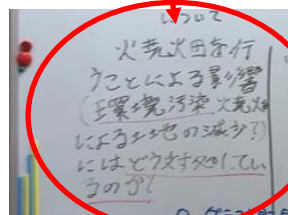 について
火荒火田を行
うことによる影響
(環境汚染、火荒火田
による土地の減少?)
にはどう対処してい
るのか?